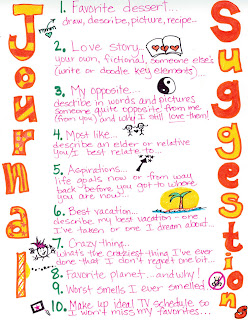 Journal
Suggestions
1. Favorite dessert...
draw, describe, picture, recipe...
2. Love story...
your own, fictional, someone else's
(write or doodle key elements)...
3. My opposite...
describe in words and pictures
someone quite opposite from me
(from you) and why I still love them!
4. Most like...
describe an elder or relative
you/I best relate to...
5. Aspirations...
life goals now or from way
back before you got to where
you are now!!
6. Best vacation...
describe my best vacation - one
I've taken or one I dream about...
7. Crazy thing...
what's the craziest thing I've ever
done that I don't regret one bit...
8. Favorite planet... and why!
9. Worst smells I ever smelled
10. Make up ideal TV schedule so
I won't miss my favorites...